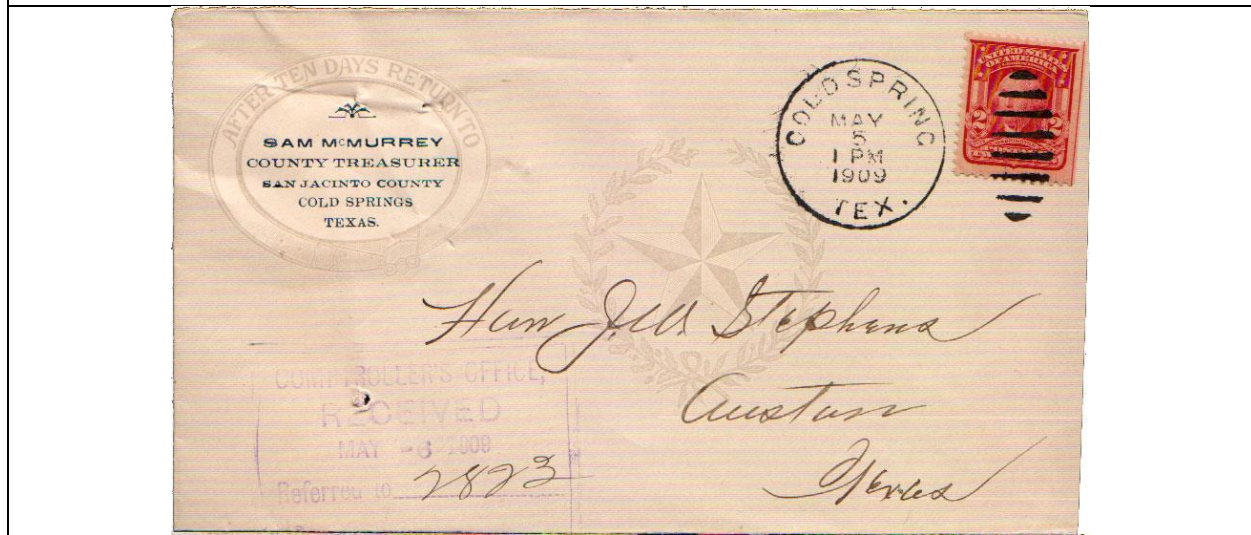 AFTER TEN DAYS RETURN TO
SAM McMURREY
COUNTY TREASURER
SAN JACINTO COUNTY
COLD SPRINGS
TEXAS.
COLDSPRING
MAY
5
1 PM
1909
TEX.
UNITED STATES
OF AMERICA
2 2
Hon J.W. Stephens
Austin
Texas
COMPTROLLER'S OFFICE,
RECEIVED
MAY -6 1909
Referred to 2823